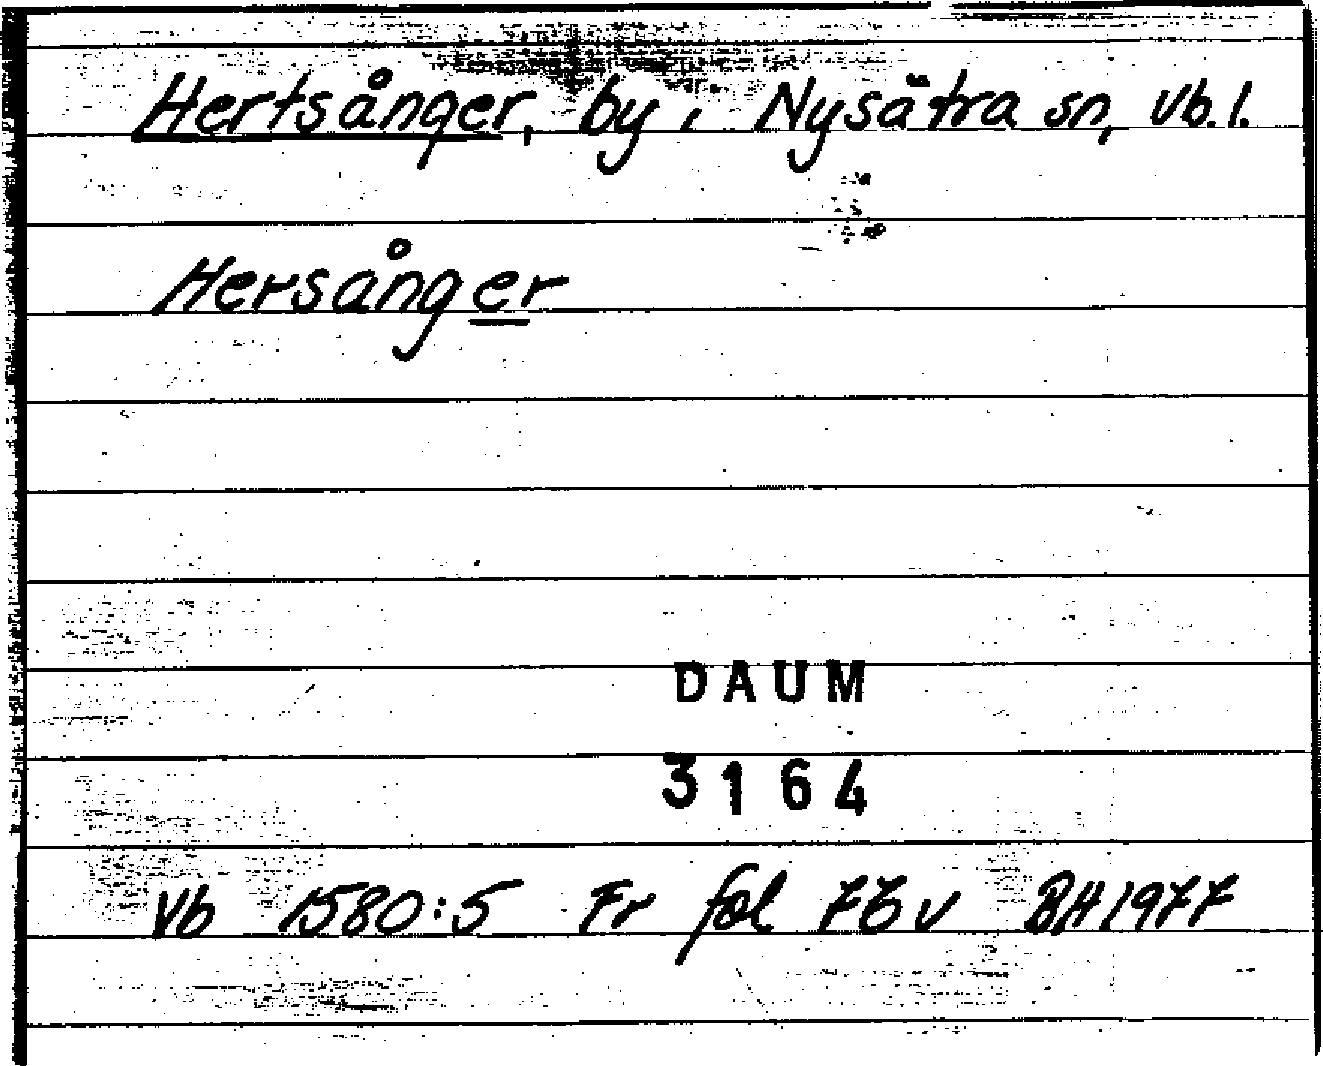 Hertsånger, by, Nysätra sn, Vb. l.
Hersånger
DAUM
3164
Vb 1580:5 Fr fol 76 v BH 1977